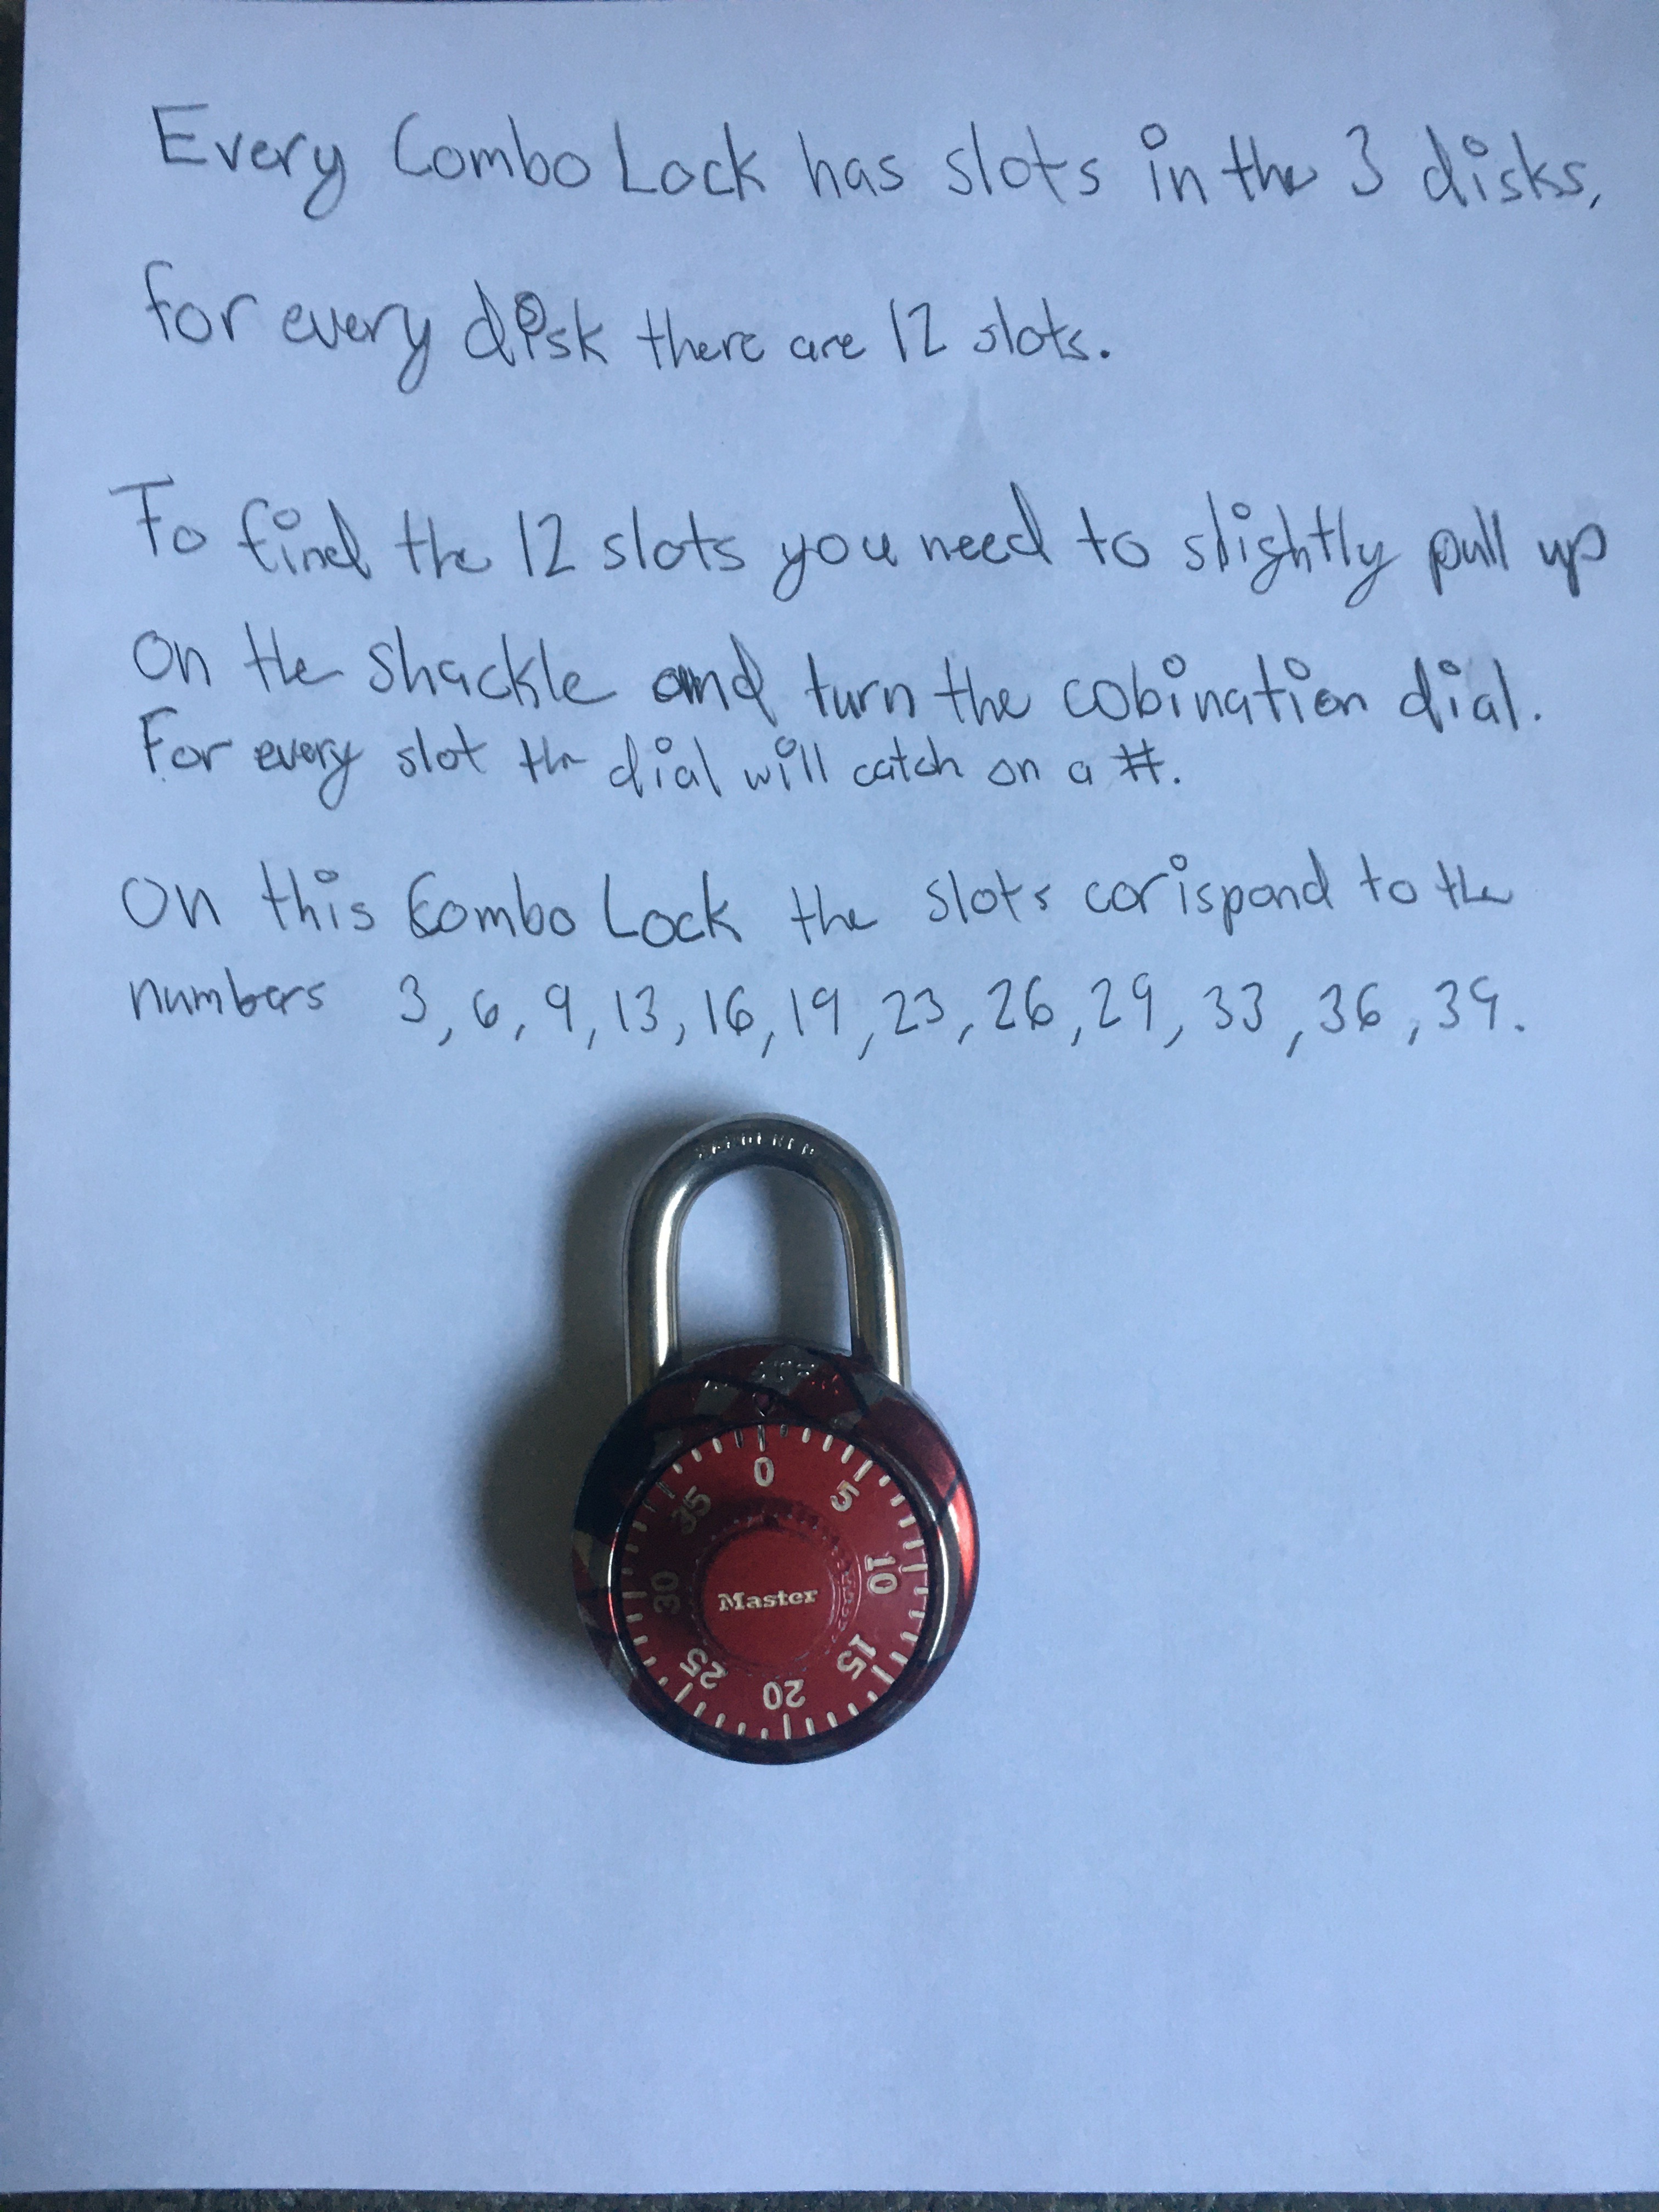 Every Combo Lock has slots in the 3 disks,
for every disk there are 12 slots.
To find the 12 slots you need to slightly pull up
on the shackle and turn the cobination dial.
For every slot the dial will catch on a #.
On this Combo Lock the slots corispond to the
numbers 3, 6, 9, 13, 16, 19, 23, 26, 29, 33, 36, 39.
HARDENED
0
35 5
30 10
Master
25 15
20